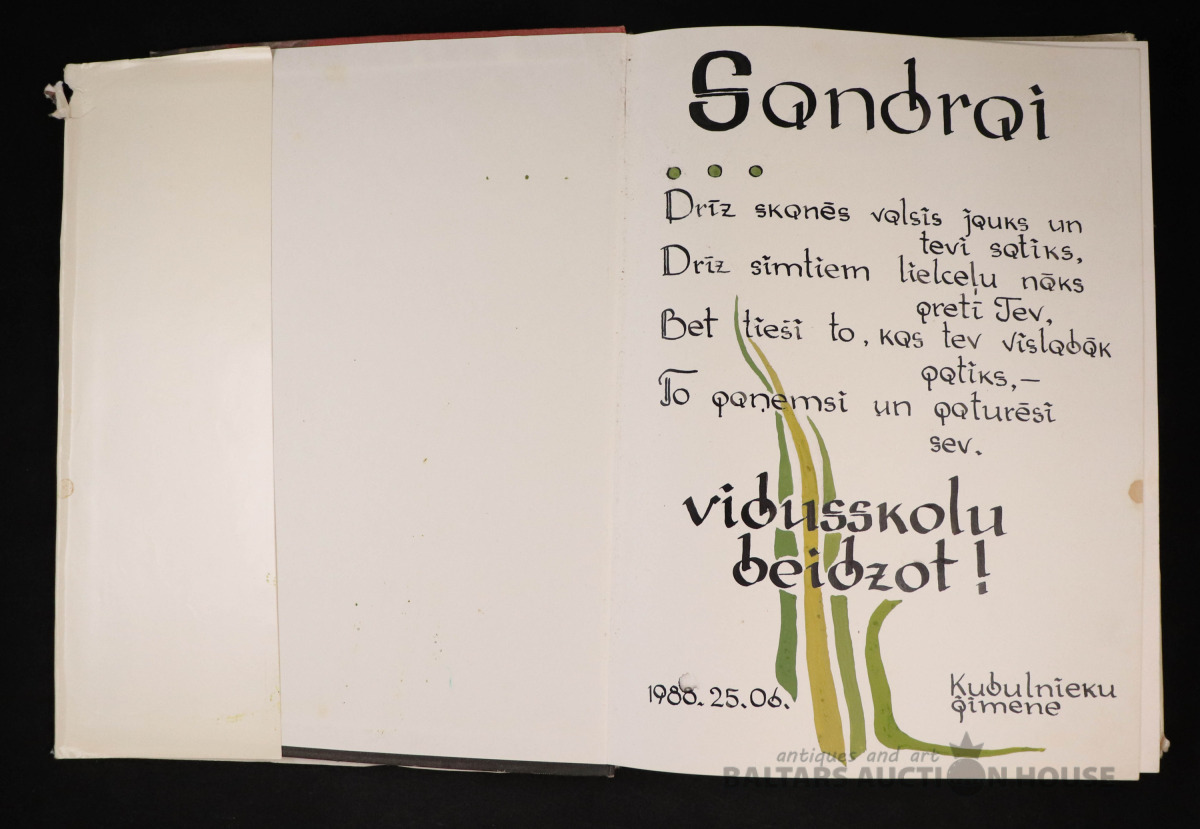 Sandrai
Drīz skanēs valsis jauks un
tevi satiks,
Drīz simtiem lielceļu nāks
pretī Tev,
Bet tieši to, kas tev vislabāk
patiks,—
To paņemsi un paturēsi
sev.
vidusskolu
beidzot!
1988. 25. 06.
Kubulnieku
ģimene
antiques and art
BALTARS AUCTION HOUSE